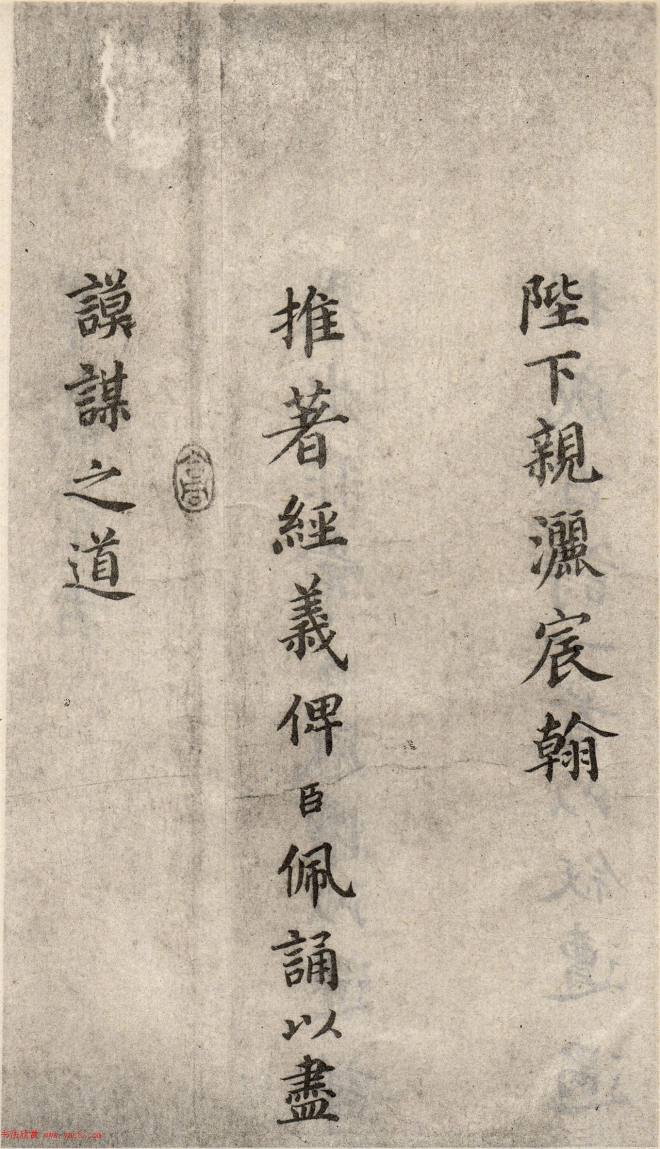 陛下親灑宸翰
推著經義俾臣佩誦以盡
謨謀之道